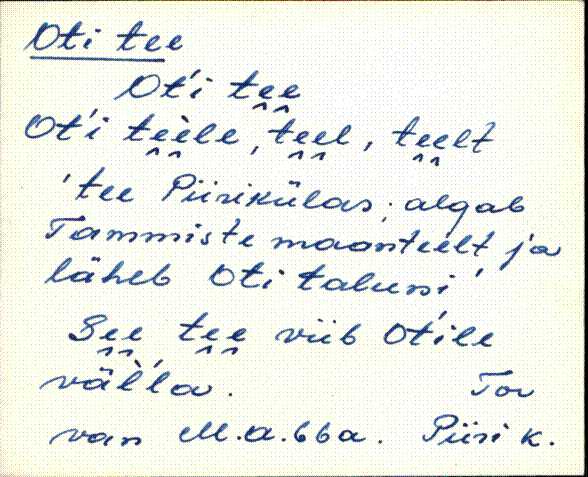 Oti tee
Ot'i tee
Ot'i teèle, teel, teelt
'tee Piirikülas; algab
Tammiste maanteelt ja
läheb Oti taluni
See tee viib Ot'ile
väl'l'a. Tor
van M.a.66a. Piiri k.